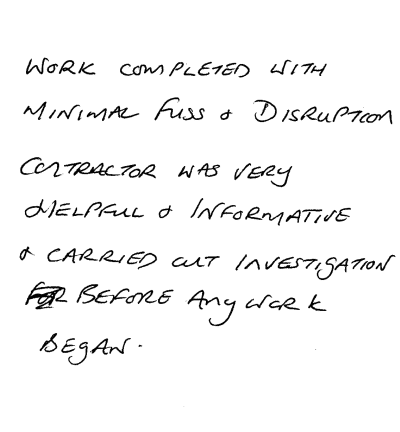 WORK COMPLETED WITH
MINIMAL FUSS & DISRUPTION
CONTRACTOR WAS VERY
HELPFUL & INFORMATIVE
& CARRIED OUT INVESTIGATION
BEFORE ANY WORK
BEGAN.